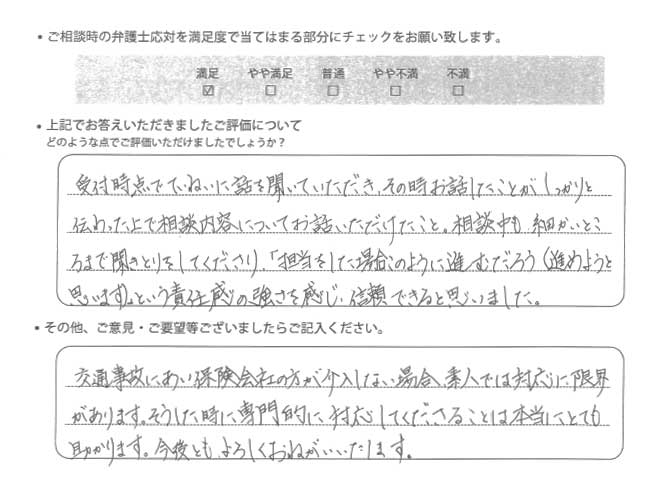 ・ご相談時の弁護士応対を満足度で当てはまる部分にチェックをお願い致します。
満足 やや満足 普通 やや不満 不満
☑ □ □ □ □
・上記でお答えいただきましたご評価について
どのような点でご評価いただけましたでしょうか?
受付時点でていねいに話を聞いていただき、その時お話したことがしっかりと
伝わった上で相談内容についてお話いただけたこと。相談中も細かいとこ
ろまで聞きとりをしてくださり、「担当をした場合このように進むだろう(進めようと
思います)」という責任感の強さを感じ、信頼できると思いました。
・その他、ご意見・ご要望等ございましたらご記入ください。
交通事故にあい保険会社の方が介入しない場合、素人では対応に限界
があります。そうした時に専門的に対応してくださることは本当にとても
助かります。今後ともよろしくおねがいいたします。